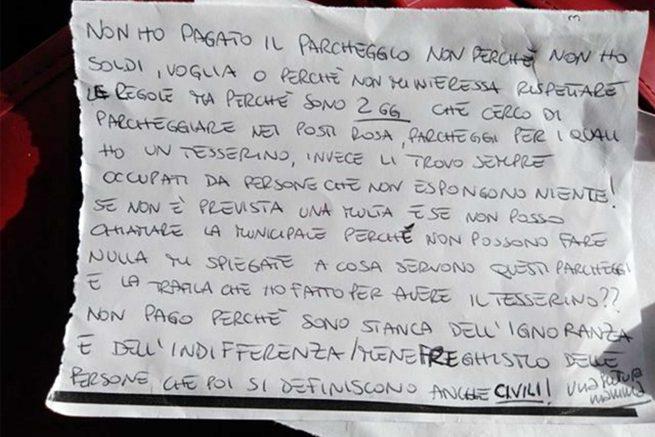 NON HO PAGATO IL PARCHEGGIO NON PERCHÈ NON HO
SOLDI, VOGLIA O PERCHÈ NON MI INTERESSA RISPETTARE
LE REGOLE MA PERCHÈ SONO 2 GG CHE CERCO DI
PARCHEGGIARE NEI POSTI ROSA, PARCHEGGI PER I QUALI
HO UN TESSERINO, INVECE LI TROVO SEMPRE
OCCUPATI DA PERSONE CHE NON ESPONGONO NIENTE!
SE NON È PREVISTA UNA MULTA E SE NON POSSO
CHIAMARE LA MUNICIPALE PERCHÈ NON POSSONO FARE
NULLA MI SPIEGATE A COSA SERVONO QUESTI PARCHEGGI
E LA TRAFILA CHE HO FATTO PER AVERE IL TESSERINO??
NON PAGO PERCHÈ SONO STANCA DELL'IGNORANZA
E DELL'INDIFFERENZA/MENEFREGHISMO DELLE
PERSONE CHE POI SI DEFINISCONO ANCHE CIVILI! UNA FUTURA
MAMMA